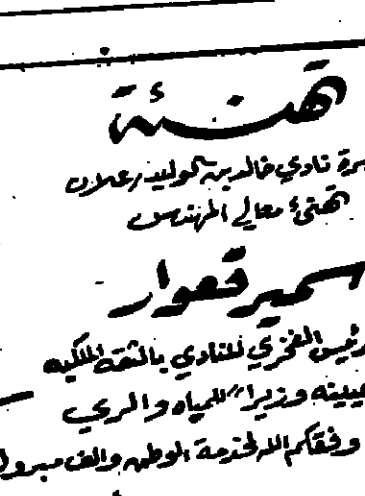 تهنئة
سرة نادي خالد بن الوليد / علان
تهنئ معالي المهندس
سمير قعوار
رئيس الفخري للنادي بالثقة الملكيه
عيينه وزيراً للمياه والري
وفقكم الله لخدمة الوطن والف مبروك